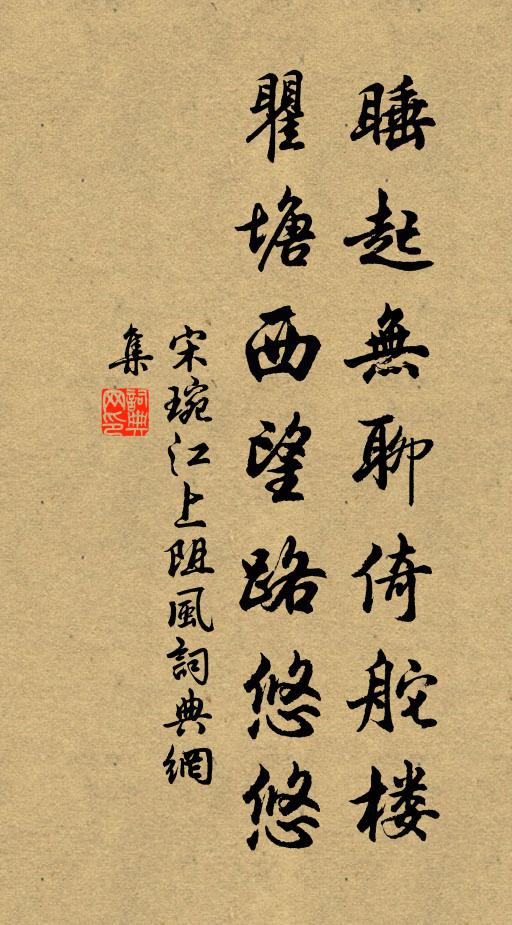 睡起無聊倚舵楼
瞿塘西望路悠悠
宋琬江上阻風詞典網
集
詞典网印